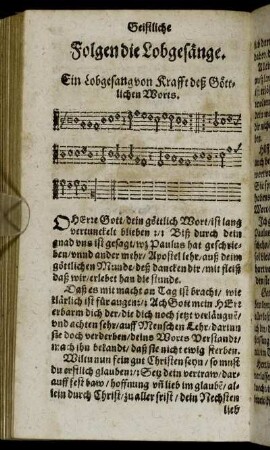 Geistliche
Folgen die Lobgesänge.
Ein Lobgesang von Krafft deß Gött-
lichen Worts.
O HErre Gott/ dein göttlich Wort/ ist lang
vertunckelt blieben :/: Biß durch dein
gnad vns ist gesagt/ wz Paulus hat geschrie-
ben/ vnnd ander mehr/ Apostel lehr/ auß deim
göttlichen Munde/ deß dancken dir/ mit fleiß
daß wir/ erlebet han die stunde.
Daß es mit macht an Tag ist bracht/ wie
klärlich ist für augen :/: Ach Gott mein HErr
erbarm dich der/ die dich noch jetzt verläugnē/
vnd achten sehr/ auff Menschen Lehr/ darinn
sie doch verderben/ deins Worts Verstandt/
mach ihn bekandt/ daß sie nicht ewig sterben.
Wiltu nun fein gut Christen seyn/ so must
du erstlich glauben :/: Setz dein vertraw/ dar-
auff fest baw/ hoffnung vñ lieb im glaubē/ al-
lein durch Christ/ zu aller frist/ dein Nechsten
lieb